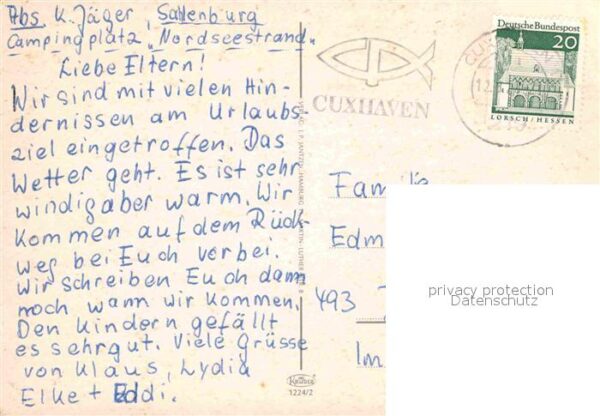 Abs. K. Jäger, Sahlenburg
Campingplatz "Nordseestrand"
Liebe Eltern!
Wir sind mit vielen Hin-
dernissen am Urlaubs-
ziel eingetroffen. Das
Wetter geht. Es ist sehr
windig aber warm. Wir
kommen auf dem Rück-
weg bei Euch vorbei.
Wir schreiben Euch dann
noch wann wir kommen.
Den Kindern gefällt
es sehr gut. Viele Grüsse
von Klaus, Lydia
Elke + Eddi.
CUXHAVEN
Deutsche Bundespost
20
LORSCH/HESSEN
Familie
Edm
493
Im
privacy protection
Datenschutz
KRÜGER
1224/2